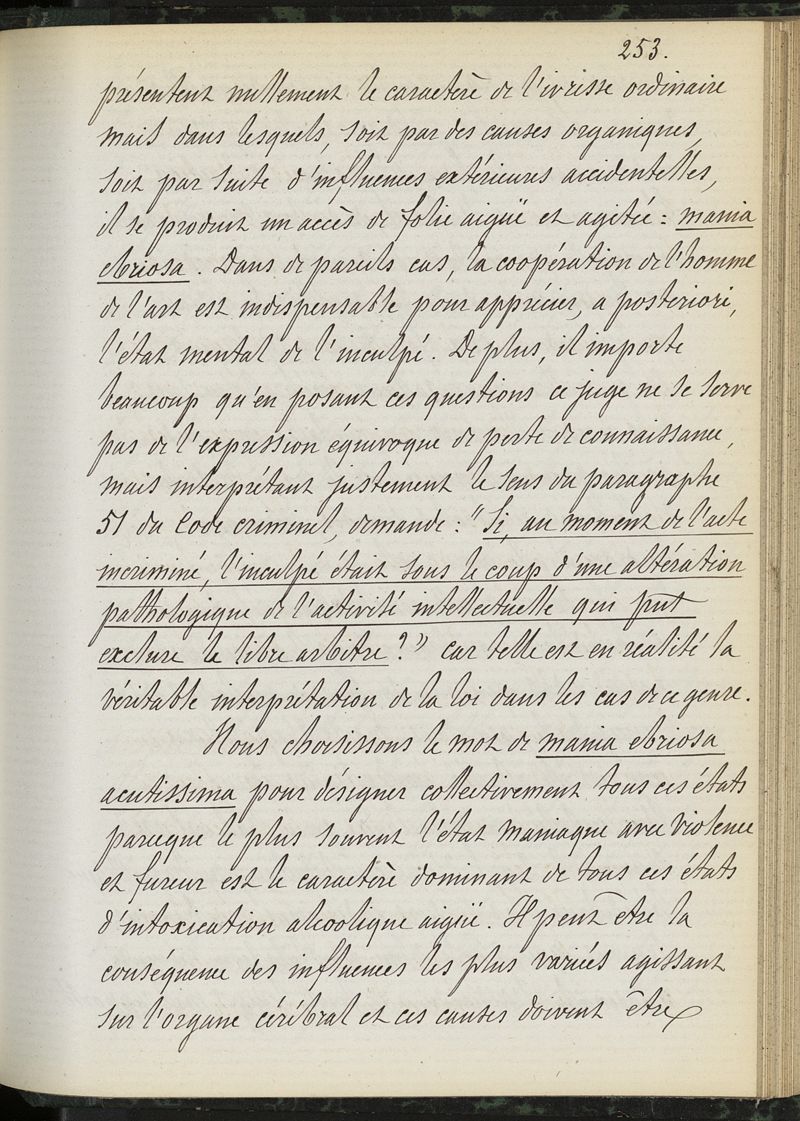 253.
présentent nullement le caractère de l'ivresse ordinaire
mais dans lesquels, soit par des causes organiques,
soit par suite d'influences extérieures accidentelles,
il se produit un accès de folie aigüe et agitée : mania
ebriosa. Dans de pareils cas, la coopération de l'homme
de l'art est indispensable pour apprécier, a posteriori,
l'état mental de l'inculpé. De plus, il importe
beaucoup qu'en posant ces questions ce juge ne se serve
pas de l'expression équivoque de perte de connaissance,
mais interprétant justement le sens du paragraphe
51 du Code criminel, demande : "Si, au moment de l'acte
incriminé, l'inculpé était sous le coup d'une altération
pathologique de l'activité intellectuelle qui put
exclure le libre arbitre ?" car telle est en réalité la
véritable interprétation de la loi dans les cas de ce genre.
Nous choisissons le mot de mania ebriosa
acutissima pour désigner collectivement tous ces états
parceque le plus souvent l'état maniaque avec violence
et fureur est le caractère dominant de tous ces états
d'intoxication alcoolique aigüe. Il peut être la
conséquence des influences les plus variées agissant
sur l'organe cérébral et ces causes doivent être